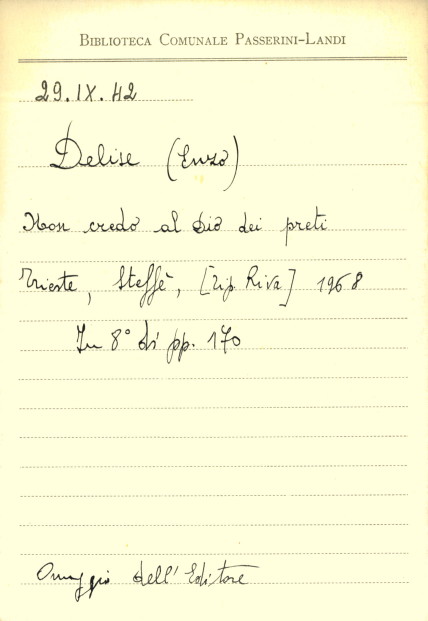 BIBLIOTECA COMUNALE PASSERINI-LANDI
29.IX.42
Delise (Enzo)
Non credo al Dio dei preti
Trieste, Steffè, [tip. Riva] 1968
In 8° di pp. 170
Omaggio dell'Editore